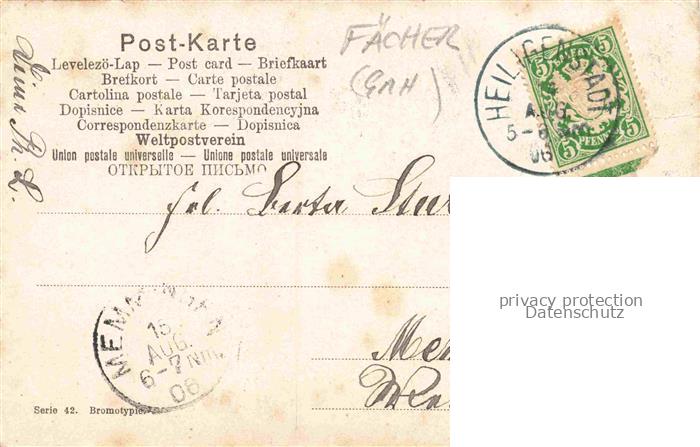 Post-Karte
Levelezö-Lap — Post card — Briefkaart
Brefkort — Carte postale
Cartolina postale — Tarjeta postal
Dopisnice — Karta Korespondencyjna
Correspondenzkarte — Dopisnica
Weltpostverein
Union postale universelle — Unione postale universale
ОТКРЫТОЕ ПИСЬМО
FÄCHER
(GRH)
HEILIGENSTADT
AUG.
5-6 Nm.
06
BAYERN
5 5
5 5
PFENNIG
Frl. Berta
MEMMINGEN
15
AUG.
6-7 Nm.
06
Serie 42. Bromotypie.
privacy protection
Datenschutz